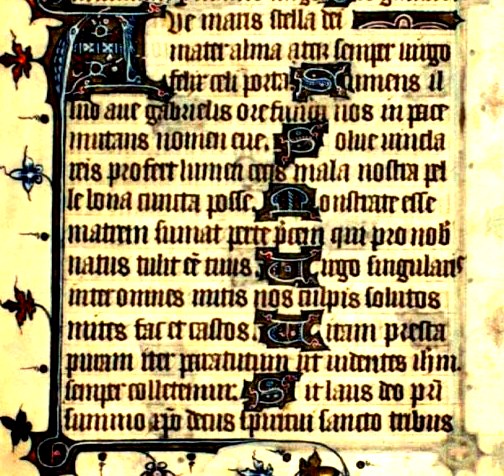 Ve maris stella dei
mater alma atqz semper uirgo
felix celi porta. Sumens il
lud aue gabrielis ore funda nos in pace
mutans nomen eue. Solue uincla
reis profer lumen cecis mala nostra pel
le bona cuncta posce. Monstra te esse
matrem sumat per te precem qui pro nob
natus tulit eē tuus. Uirgo singularis
inter omnes mitis nos culpis solutos
mites fac et castos. Uitam presta
puram iter para tutum ut uidentes ihm
semper colletemur. Sit laus deo pri
summo xpo decus spiritui sancto tribus